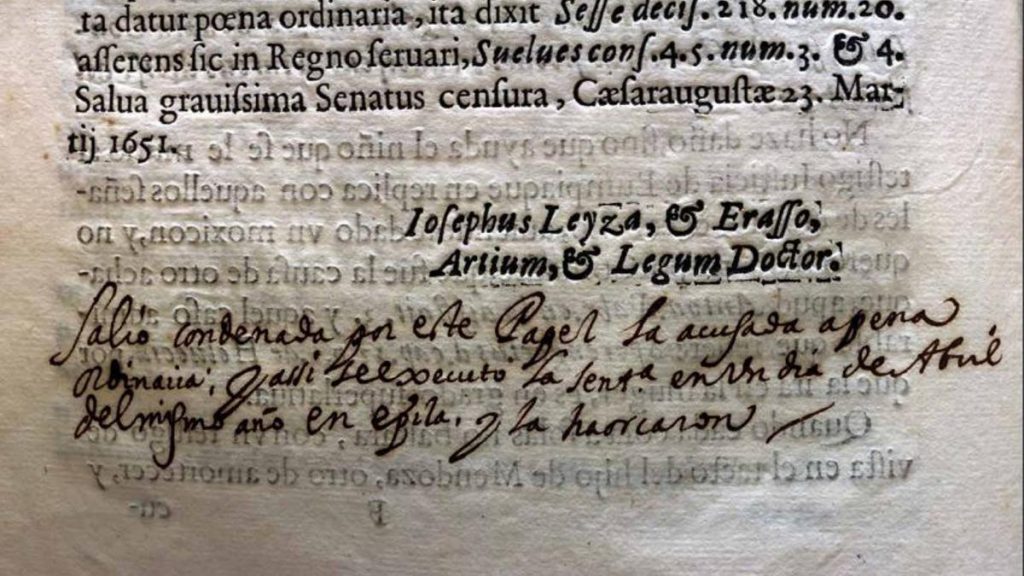 ta datur pœna ordinaria, ita dixit Seſſe deciſ. 218. num. 20.
aſſerens ſic in Regno ſeruari, Suelues conſ. 4. 5. num. 3. & 4.
Salua grauiſsima Senatus cenſura, Cæſarauguſtæ 23. Mar-
tij 1651.
Ioſephus Leyza, & Eraſſo,
Artium, & Legum Doctor.
Salio condenada por este Papel la acusada a pena
ordinaria; y assi se executo la sentª en Un dia de Abril
del mismo año en epila, y la haorcaron